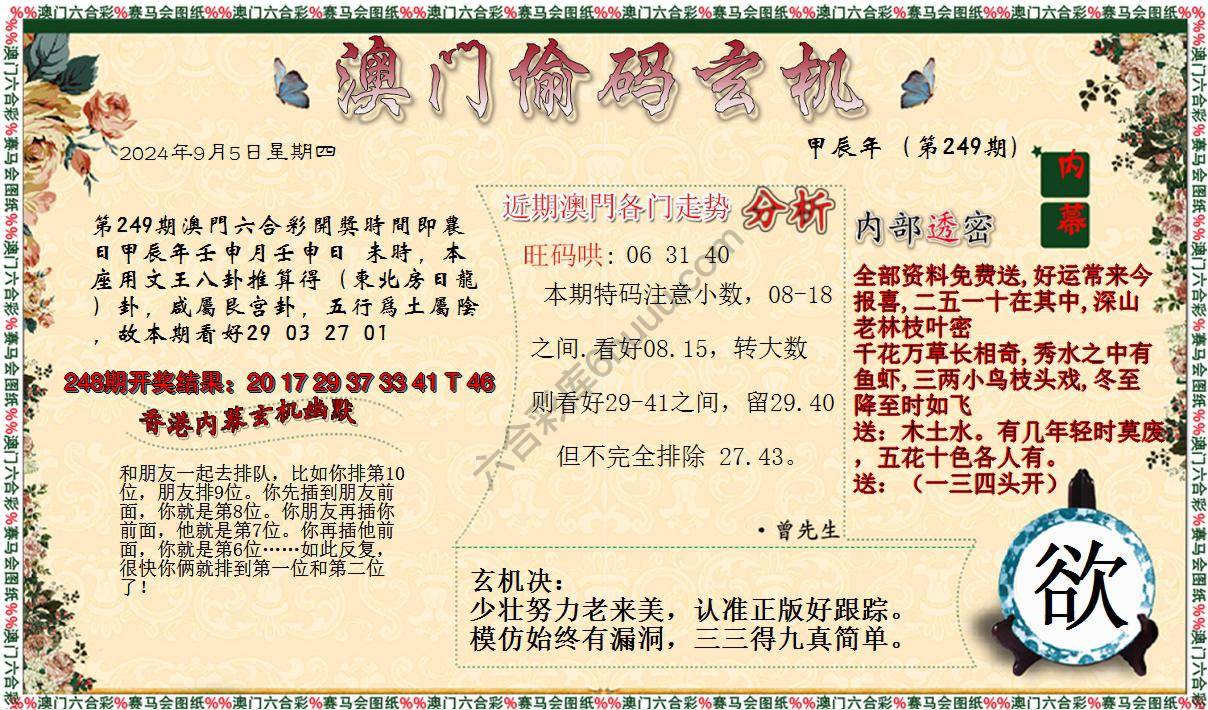 %%澳门六合彩%赛马会图纸%%澳门六合彩%赛马会图纸%%澳门六合彩%赛马会图纸%%澳门六合彩%赛马会图纸%%澳门六合彩%赛马会图纸%%澳门六合彩%赛马会图纸%%
澳门偷码玄机
2024年9月5日星期四
甲辰年（第249期）
内
幕
第249期澳門六合彩開獎時間即農
日甲辰年壬申月壬申日 未時，本
座用文王八卦推算得（東北房日龍
）卦，咸屬艮宫卦，五行爲土屬陰
，故本期看好29 03 27 01
248期开奖结果：20 17 29 37 33 41 T 46
香港内幕玄机幽默
和朋友一起去排队，比如你排第10
位，朋友排9位。你先插到朋友前
面，你就是第8位。你朋友再插你
前面，他就是第7位。你再插他前
面，你就是第6位……如此反复，
很快你俩就排到第一位和第二位
了！
近期澳門各门走势 分析
旺码哄: 06 31 40
本期特码注意小数，08-18
之间.看好08.15，转大数
则看好29-41之间，留29.40
但不完全排除 27.43。
·曾先生
内部透密
全部资料免费送,好运常来今
报喜,二五一十在其中,深山
老林枝叶密
千花万草长相奇,秀水之中有
鱼虾,三两小鸟枝头戏,冬至
降至时如飞
送：木土水。有几年轻时莫废
，五花十色各人有。
送：（一三四头开）
玄机决：
少壮努力老来美，认准正版好跟踪。
模仿始终有漏洞，三三得九真简单。
欲